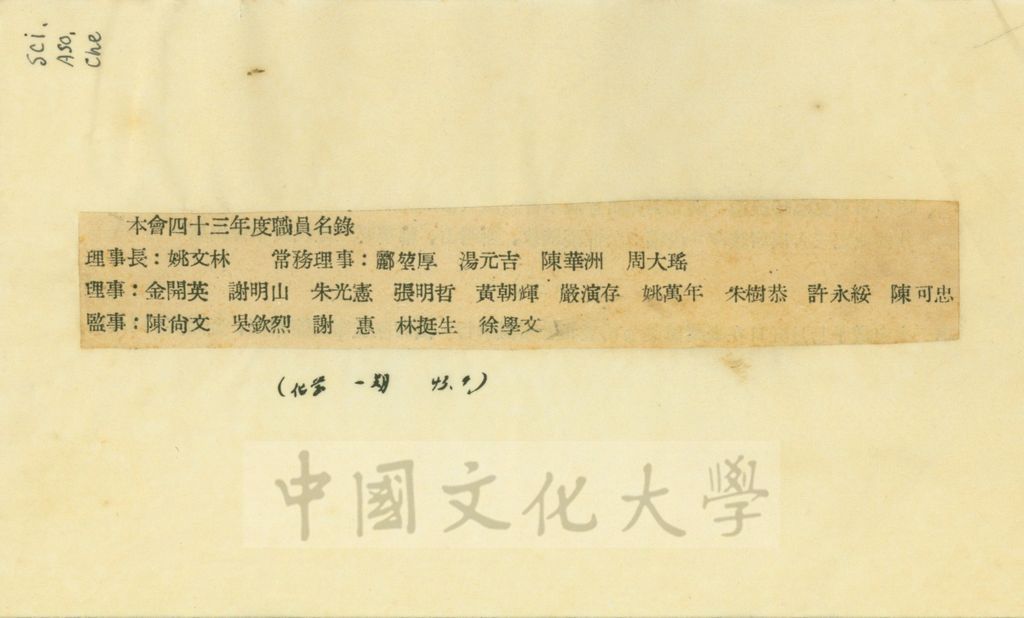 Sci.
Aso.
Che
本會四十三年度職員名錄
理事長：姚文林　常務理事：酈堃厚　湯元吉　陳華洲　周大瑤
理事：金開英　謝明山　朱光憲　張明哲　黃朝輝　嚴演存　姚萬年　朱樹恭　許永綏　陳可忠
監事：陳尙文　吳欽烈　謝　惠　林挺生　徐學文
(化学 一期 43.9.)
中國文化大學